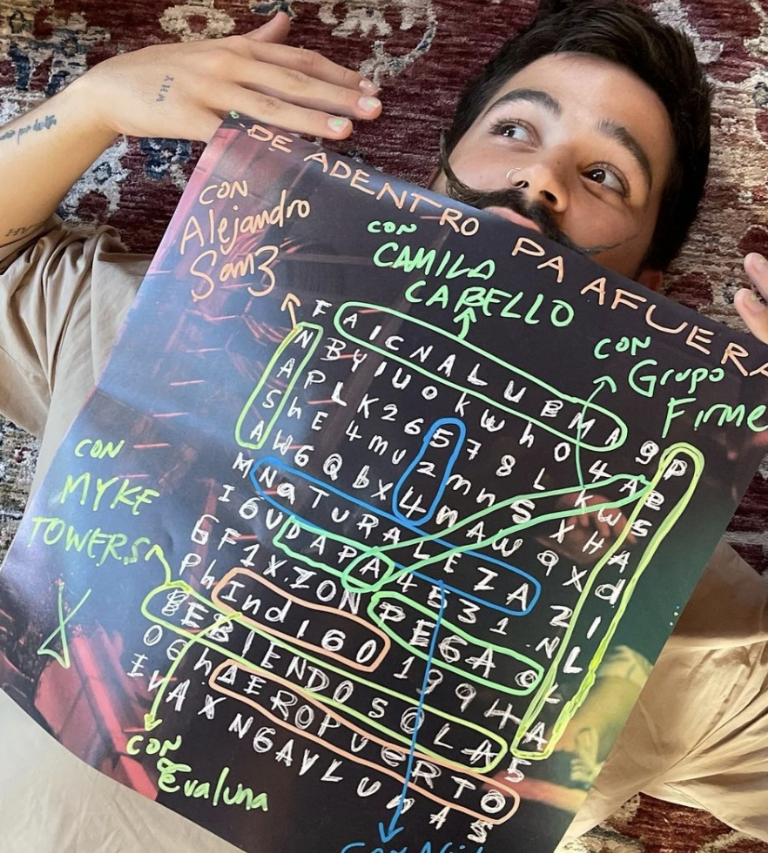 WHY
DE ADENTRO PA AFUERA
CON
Alejandro
San3
CON
CAMILA
CABELLO
CON
Grupo
Firme
F A I C N A L U B M A 9 P
N B Y I U O K W h O 4 A E
A P L K 2 6 5 7 8 L K W S
S h E 4 m U 2 m n S X H A
A W 6 Q b X 4 n A W Q X d
M N a T U R A L E Z A Z I
I 6 U D A P A 4 5 3 1 N L
G F 1 X Z O N P E G A O L
P h I n d I 6 O 1 9 9 H A
B E B I E N D O S O L A 5
O G h A E R O P U E R T O
E V A X N G A V L U N A S
CON
MYKE
TOWERS
CON
Evaluna